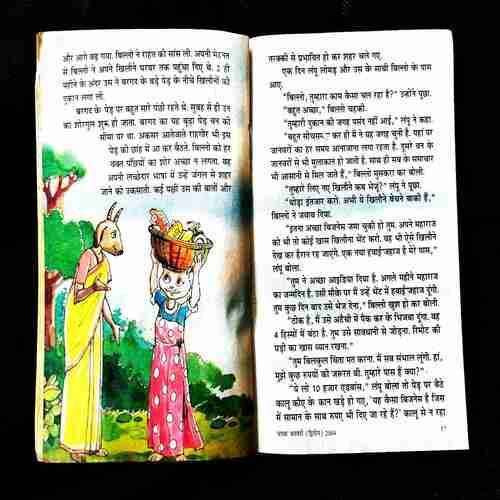 और आगे बढ़ गया. बिल्लो ने राहत की सांस ली. अपनी मेहनत
से बिल्लो ने अपने खिलौने घरघर तक पहुंचा दिए थे. 2 ही
महीने के अंदर उस ने बरगद के बड़े पेड़ के नीचे खिलौनों की
दुकान लगा ली.
बरगद के पेड़ पर बहुत सारे पंछी रहते थे. सुबह से ही उन
का शोरगुल शुरू हो जाता. बरगद का यह बूढ़ा पेड़ वन की
सीमा पर था. अकसर आनेजाने राहगीर भी इस
पेड़ की छांह में आ कर बैठते. बिल्लो को हर
वक्त पंछियों का शोर अच्छा न लगता. वह
अपनी लच्छेदार भाषा में उन्हें जंगल से शहर
जाने को उकसाती. कई पक्षी उस की बातों और
तरक्की से प्रभावित हो कर शहर चले गए.
एक दिन लंपू लोमड़ और उस के साथी बिल्लो के पास
आए.
"बिल्लो, तुम्हारा काम कैसा चल रहा है?" उन्होंने पूछा.
"बहुत अच्छा," बिल्लो चहकी.
"तुम्हारी दुकान की जगह पसंद नहीं आई," लंपू ने कहा.
"बहुत सोचसमझ कर ही मैं ने यह जगह चुनी है. यहां पर
जानवरों का हर समय आनाजाना लगा रहता है. दूसरे वन के
जानवरों से भी मुलाकात हो जाती है. साथ ही सब के समाचार
भी आसानी से मिल जाते हैं," बिल्लो मुसकरा कर बोली.
"तुम्हारे लिए नए खिलौने कब भेजूं?" लंपू ने पूछा.
"थोड़ा इंतजार करो. अभी ये खिलौने बेचने बाकी हैं,"
बिल्लो ने जवाब दिया.
"इतना अच्छा बिजनेस जमा चुकी हो तुम. अपने महाराज
को भी तो कोई खास खिलौना भेंट करो. वह भी ऐसे खिलौने
देख कर हैरान रह जाएंगे. एक नया हवाईजहाज है मेरे पास,"
लंपू बोला.
"तुम ने अच्छा आइडिया दिया है. अगले महीने महाराज
का जन्मदिन है. उसी मौके पर मैं उन्हें भेंट में हवाईजहाज दूंगी.
तुम कुछ दिन बाद उसे भेज देना," बिल्लो खुश हो कर बोली.
"ठीक है, मैं उसे अटैची में पैक कर के भिजवा दूंगा. वह
4 हिस्सों में बंटा है. तुम उसे सावधानी से जोड़ना. रिमोट की
घड़ी का खास ध्यान रखना."
"तुम बिलकुल चिंता मत करना. मैं सब संभाल लूंगी. हां,
मुझे कुछ रुपयों की जरूरत थी. तुम्हारे पास हैं क्या?"
"ये लो 10 हजार एडवांस," लंपू बोला तो पेड़ पर बैठे
कालू कौए के कान खड़े हो गए, 'यह कैसा बिजनेस है जिस
में सामान के साथ रुपए भी दिए जा रहे हैं?' कालू से न रहा
(द्वितीय) 2004